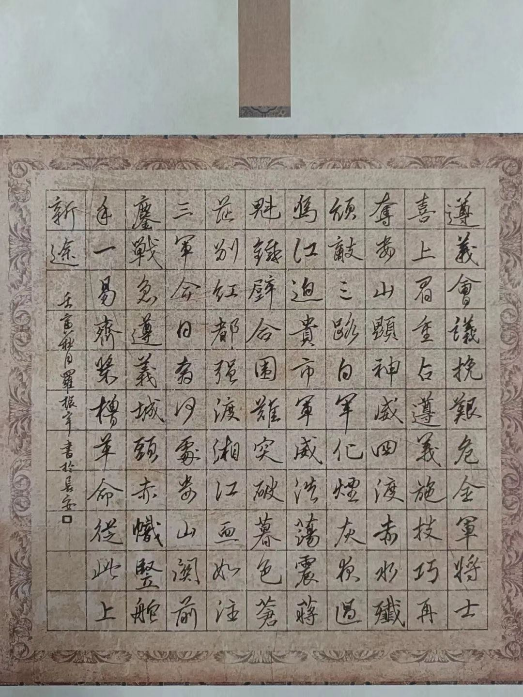 遵義會議挽艱危全軍將士
喜上眉重占遵義施技巧再
奪婁山顯神威四渡赤水殲
頑敵三路白軍化煙灰夜過
烏江迫貴市軍威浩蕩震蔣
魁鐵壁合圍難突破暮色蒼
茫別紅都强渡湘江血如注
三軍今日何處婁山關前
鏖戰急遵義城頭赤幟豎舵
手一易齊槳櫓革命從此上
新途
壬寅秋月羅振書於長安